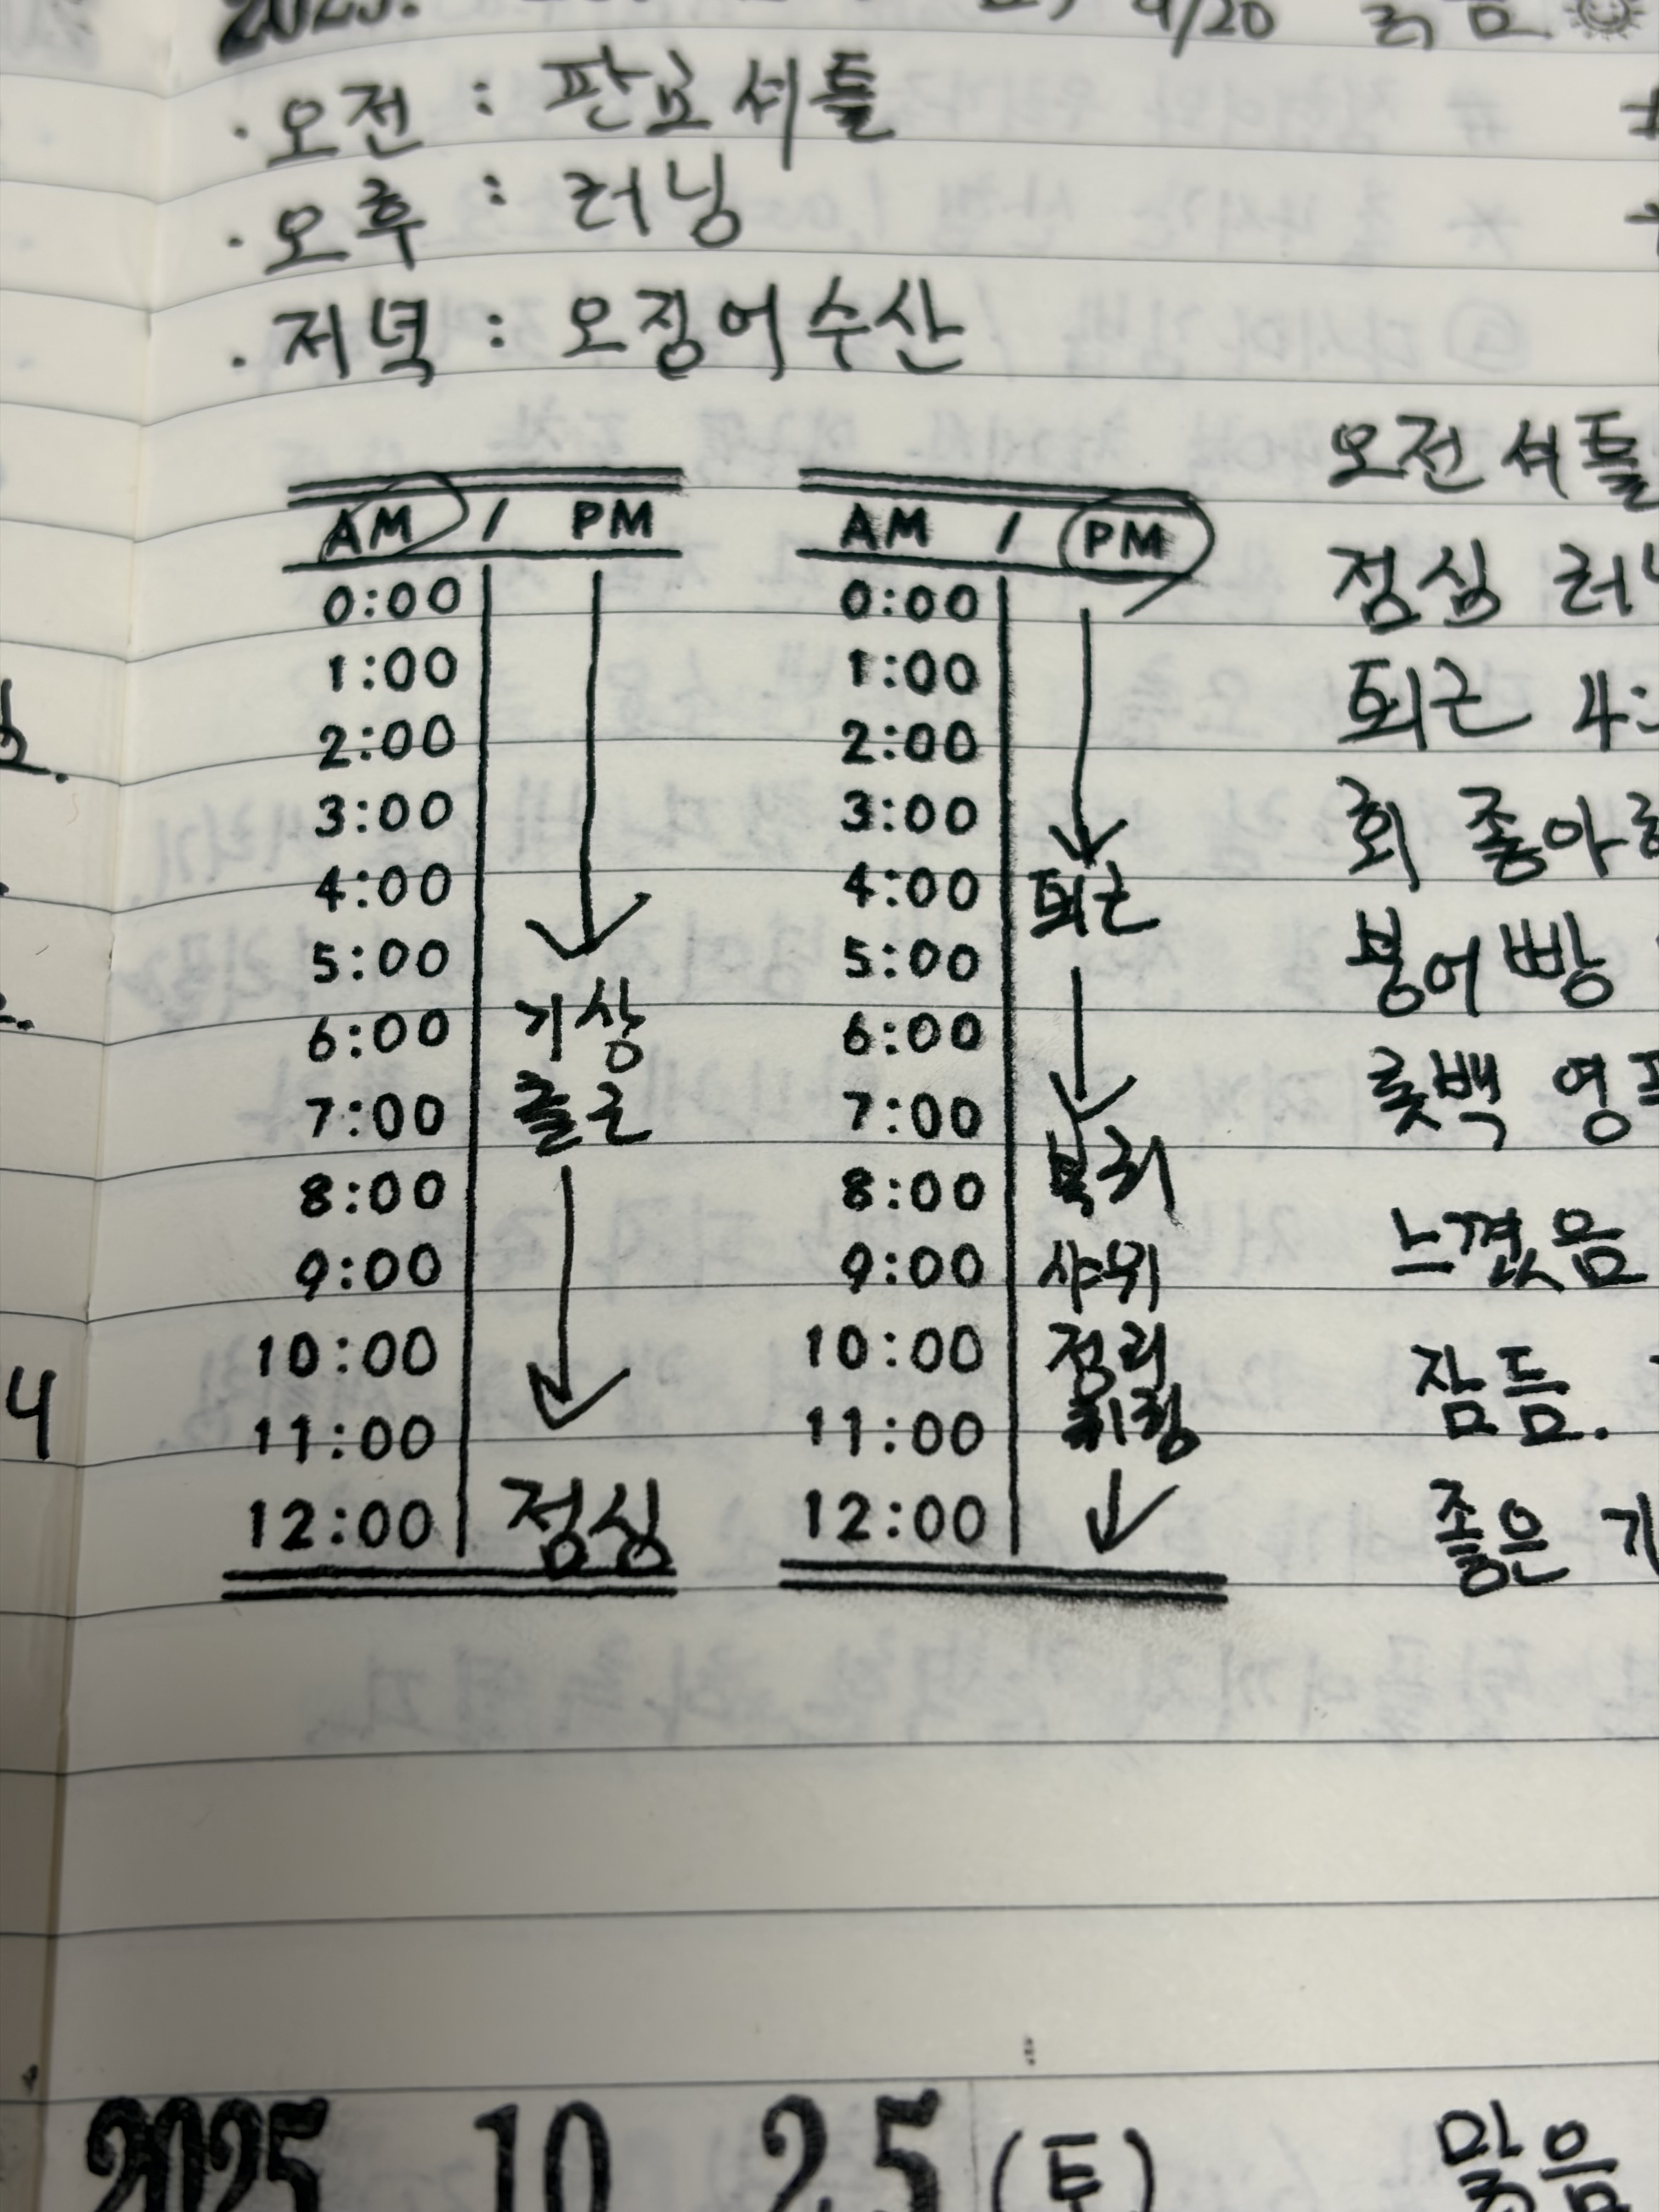 2025. 9/20
· 오전 : 판교셔틀
· 오후 : 러닝
· 저녁 : 오징어수산
AM / PM
0:00
1:00
2:00
3:00
4:00
5:00
6:00 기상
7:00 출근
8:00
9:00
10:00
11:00
12:00 점심
AM / PM
0:00
1:00
2:00
3:00
4:00 퇴근
5:00
6:00
7:00
8:00 복귀
9:00 샤워
10:00 정리
11:00 취침
12:00
오전 셔틀
점심
퇴근 4:
회 좋아
붕어빵
룻백
느꼈음
잠듬.
좋은
4
2025 10 25 (토) 맑음